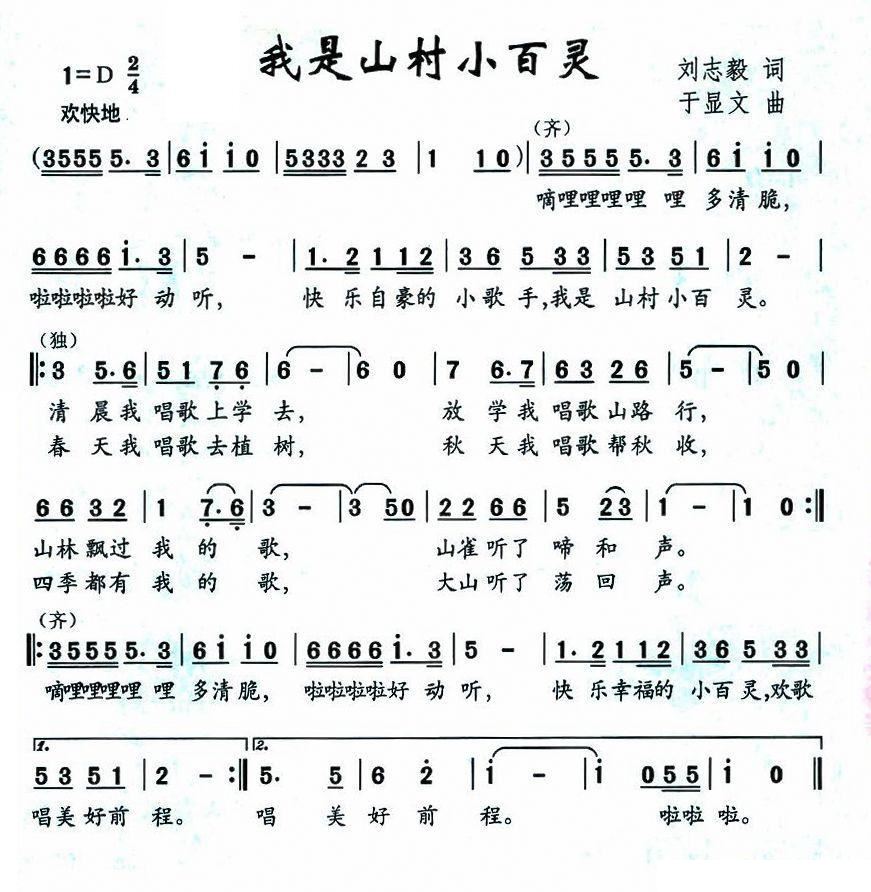 我是山村小百灵
1=D 2/4
刘志毅 词
欢快地
于显文 曲
(齐)
(3555 5. 3 | 6 i i 0 | 5333 2 3 | 1 1 0) | 3 5 5 5 5. 3 | 6 i i 0 |
嘀哩哩哩哩 哩 多清脆,
6 6 6 6 i. 3 | 5 - | 1. 2 1 12 | 3 6 5 33 | 53 51 | 2 - |
啦啦啦啦好 动 听, 快 乐自豪的 小歌手,我是 山村小百 灵。
(独)
‖: 3 5. 6 | 5 1 7 6 | 6 - | 6 0 | 7 6. 7 | 63 26 | 5 - | 5 0 |
清 晨我 唱歌上学 去, 放 学我 唱歌山路 行,
春 天我 唱歌去植 树, 秋 天我 唱歌帮秋 收,
6 6 3 2 | 1 7. 6 | 3 - | 3 50 | 22 66 | 5 23 | 1 - | 1 0 :‖
山林飘过 我 的 歌, 山雀听了 啼和 声。
四季都有 我 的 歌, 大山听了 荡回 声。
(齐)
‖: 3555 5. 3 | 6 i i 0 | 6 6 6 6 i. 3 | 5 - | 1. 2 1 12 | 36 5 33 |
嘀哩哩哩哩 哩 多清脆, 啦啦啦啦好 动 听, 快 乐幸福的 小百灵,欢歌
1. 2.
53 51 | 2 - :‖ 5. 5 | 6 2̇ | i - | i 0 55 | i 0 ‖
唱美好前 程。 唱 美 好 前 程。 啦啦 啦。